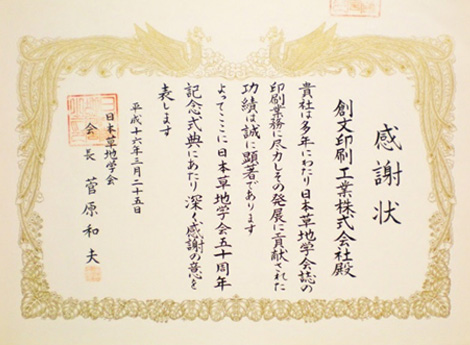 感謝状
創文印刷工業株式会社殿
貴社は多年にわたり日本草地学会誌の
印刷業務に尽力しその発展に貢献された
功績は誠に顕著であります
よってここに日本草地学会五十周年
記念式典にあたり深く感謝の意を
表します
平成十六年三月二十五日
日本草地学会
会長 菅原和夫